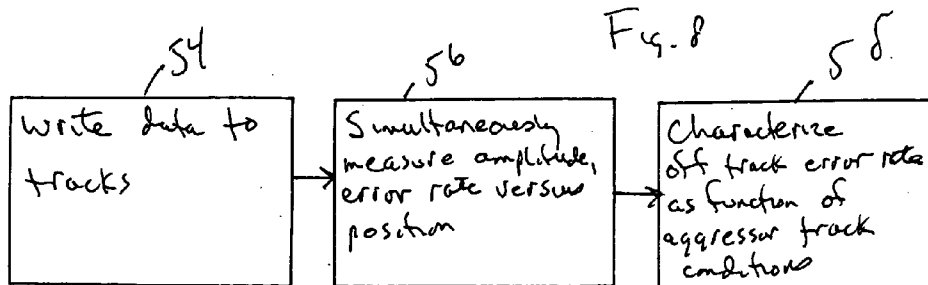 Fig. 8
54
56
58
Write data to
tracks
Simultaneously
measure amplitude,
error rate versus
position
Characterize
off track error rate
as function of
aggressor track
conditions